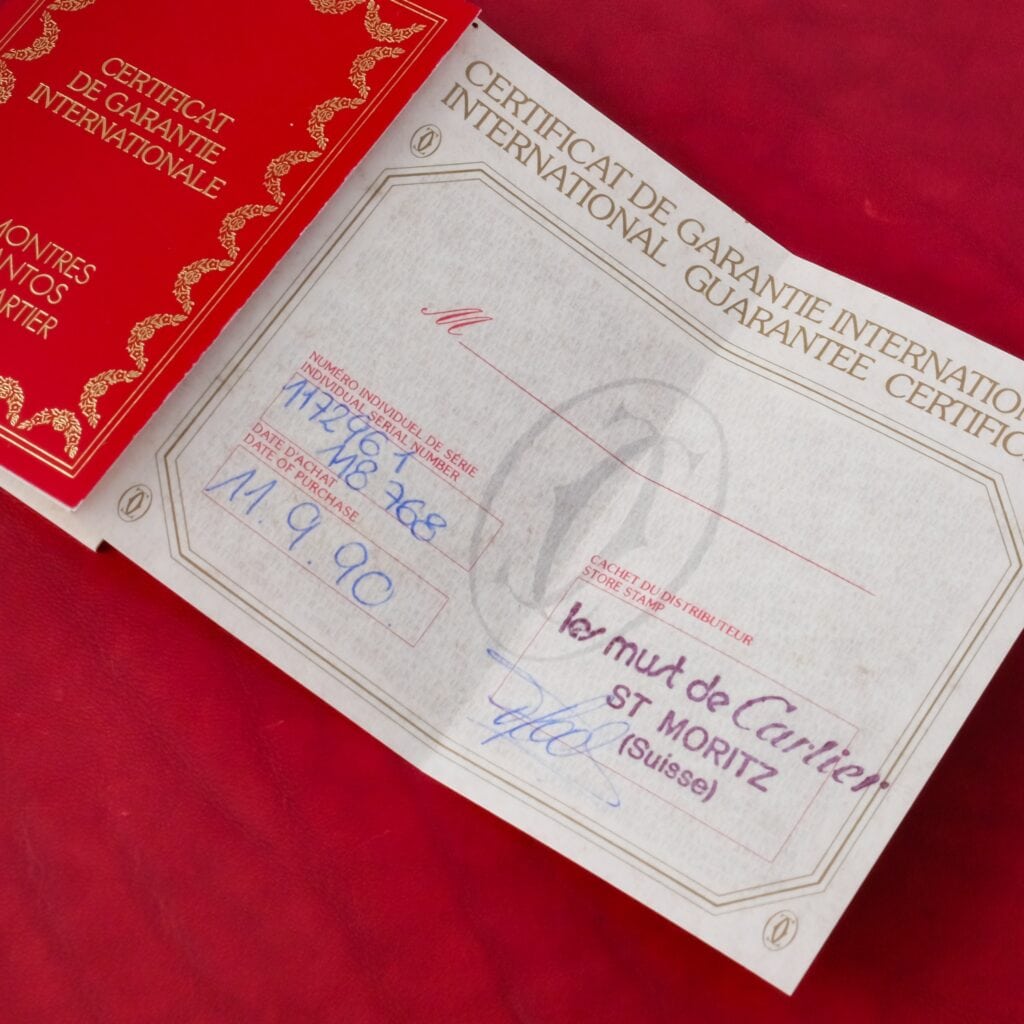 CERTIFICAT
DE GARANTIE
INTERNATIONALE
MONTRES
ANTOS
ARTIER
CERTIFICAT DE GARANTIE INTERNATIO
INTERNATIONAL GUARANTEE CERTIFIC
M
NUMÉRO INDIVIDUEL DE SÉRIE
INDIVIDUAL SERIAL NUMBER
1172961
118 768
DATE D'ACHAT
DATE OF PURCHASE
11.9.90.
CACHET DU DISTRIBUTEUR
STORE STAMP
les must de Cartier
ST MORITZ
(Suisse)